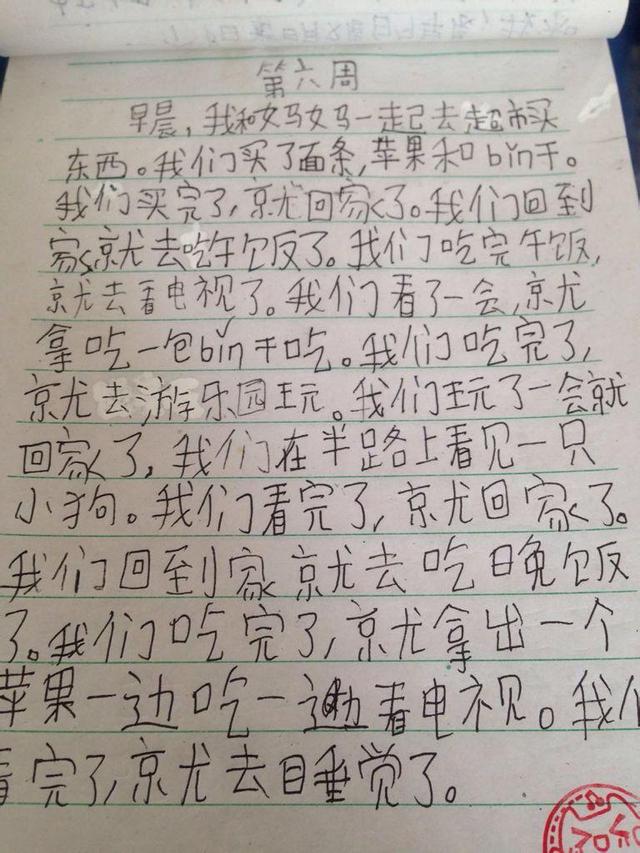 第六周
早晨，我和妈妈一起去超市买
东西。我们买了面条，苹果和bin干。
我们买完了，就回家了。我们回到
家就去吃午饭了。我们吃完午饭，
就去看电视了。我们看了一会，就
拿吃一包bin干吃。我们吃完了，
就去游乐园玩。我们玩了一会就
回家了，我们在半路上看见一只
小狗。我们看完了，就回家了。
我们回到家就去吃晚饭
了。我们吃完了，就拿出一个
苹果一边吃一边看电视。我们
看完了，就去睡觉了。